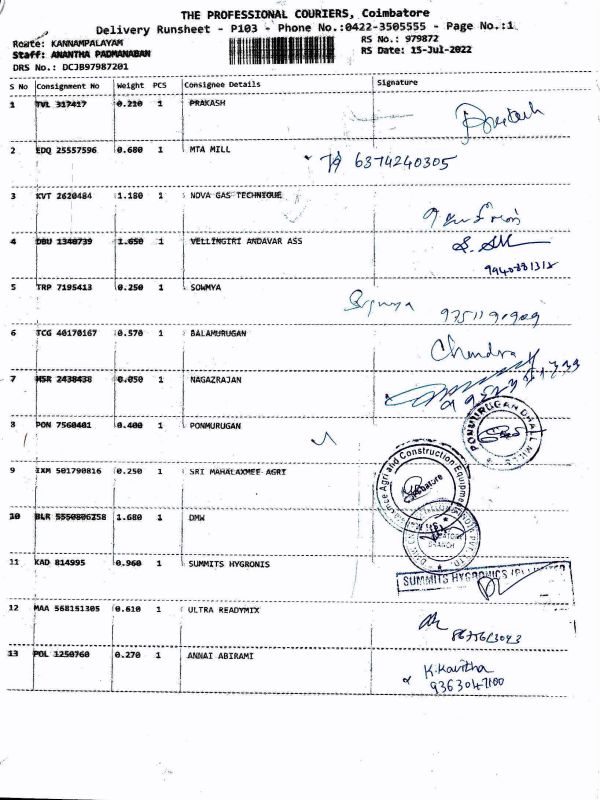 THE PROFESSIONAL COURIERS, Coimbatore
Delivery Runsheet - P103 - Phone No.:0422-3505555 - Page No.:1
Route: KANNAMPALAYAM
RS No.: 979872
Staff: ANANTHA PADMANABAN
RS Date: 15-Jul-2022
DRS No.: DCJB97987201
S No Consignment No Weight PCS Consignee Details Signature
1 TVL 317417 0.210 1 PRAKASH
2 EDQ 25557596 0.680 1 MTA MILL
6374240305
3 KVT 2620484 1.180 1 NOVA GAS TECHNIQUE
4 DBU 1340739 1.650 1 VELLINGIRI ANDAVAR ASS
5 TRP 7195413 0.250 1 SOWMYA
6 TCG 40170167 0.570 1 BALAMURUGAN
Chandra
7 MSR 2438438 0.050 1 NAGAZRAJAN
8 PON 7560401 0.400 1 PONMURUGAN
PONMURUGAN DHALL MILLS
9 IXM 501790816 0.250 1 SRI MAHALAXMEE AGRI
Agri and Construction Equipment
Coimbatore
10 BLR 5550806258 1.680 1 DMW
BRANCH
11 KAD 814995 0.960 1 SUMMITS HYGRONIS
SUMMITS HYGRONICS (P) LIMITED
12 MAA 568151305 0.610 1 ULTRA READYMIX
13 POL 1250760 0.270 1 ANNAI ABIRAMI
K.Kavitha
9363047100